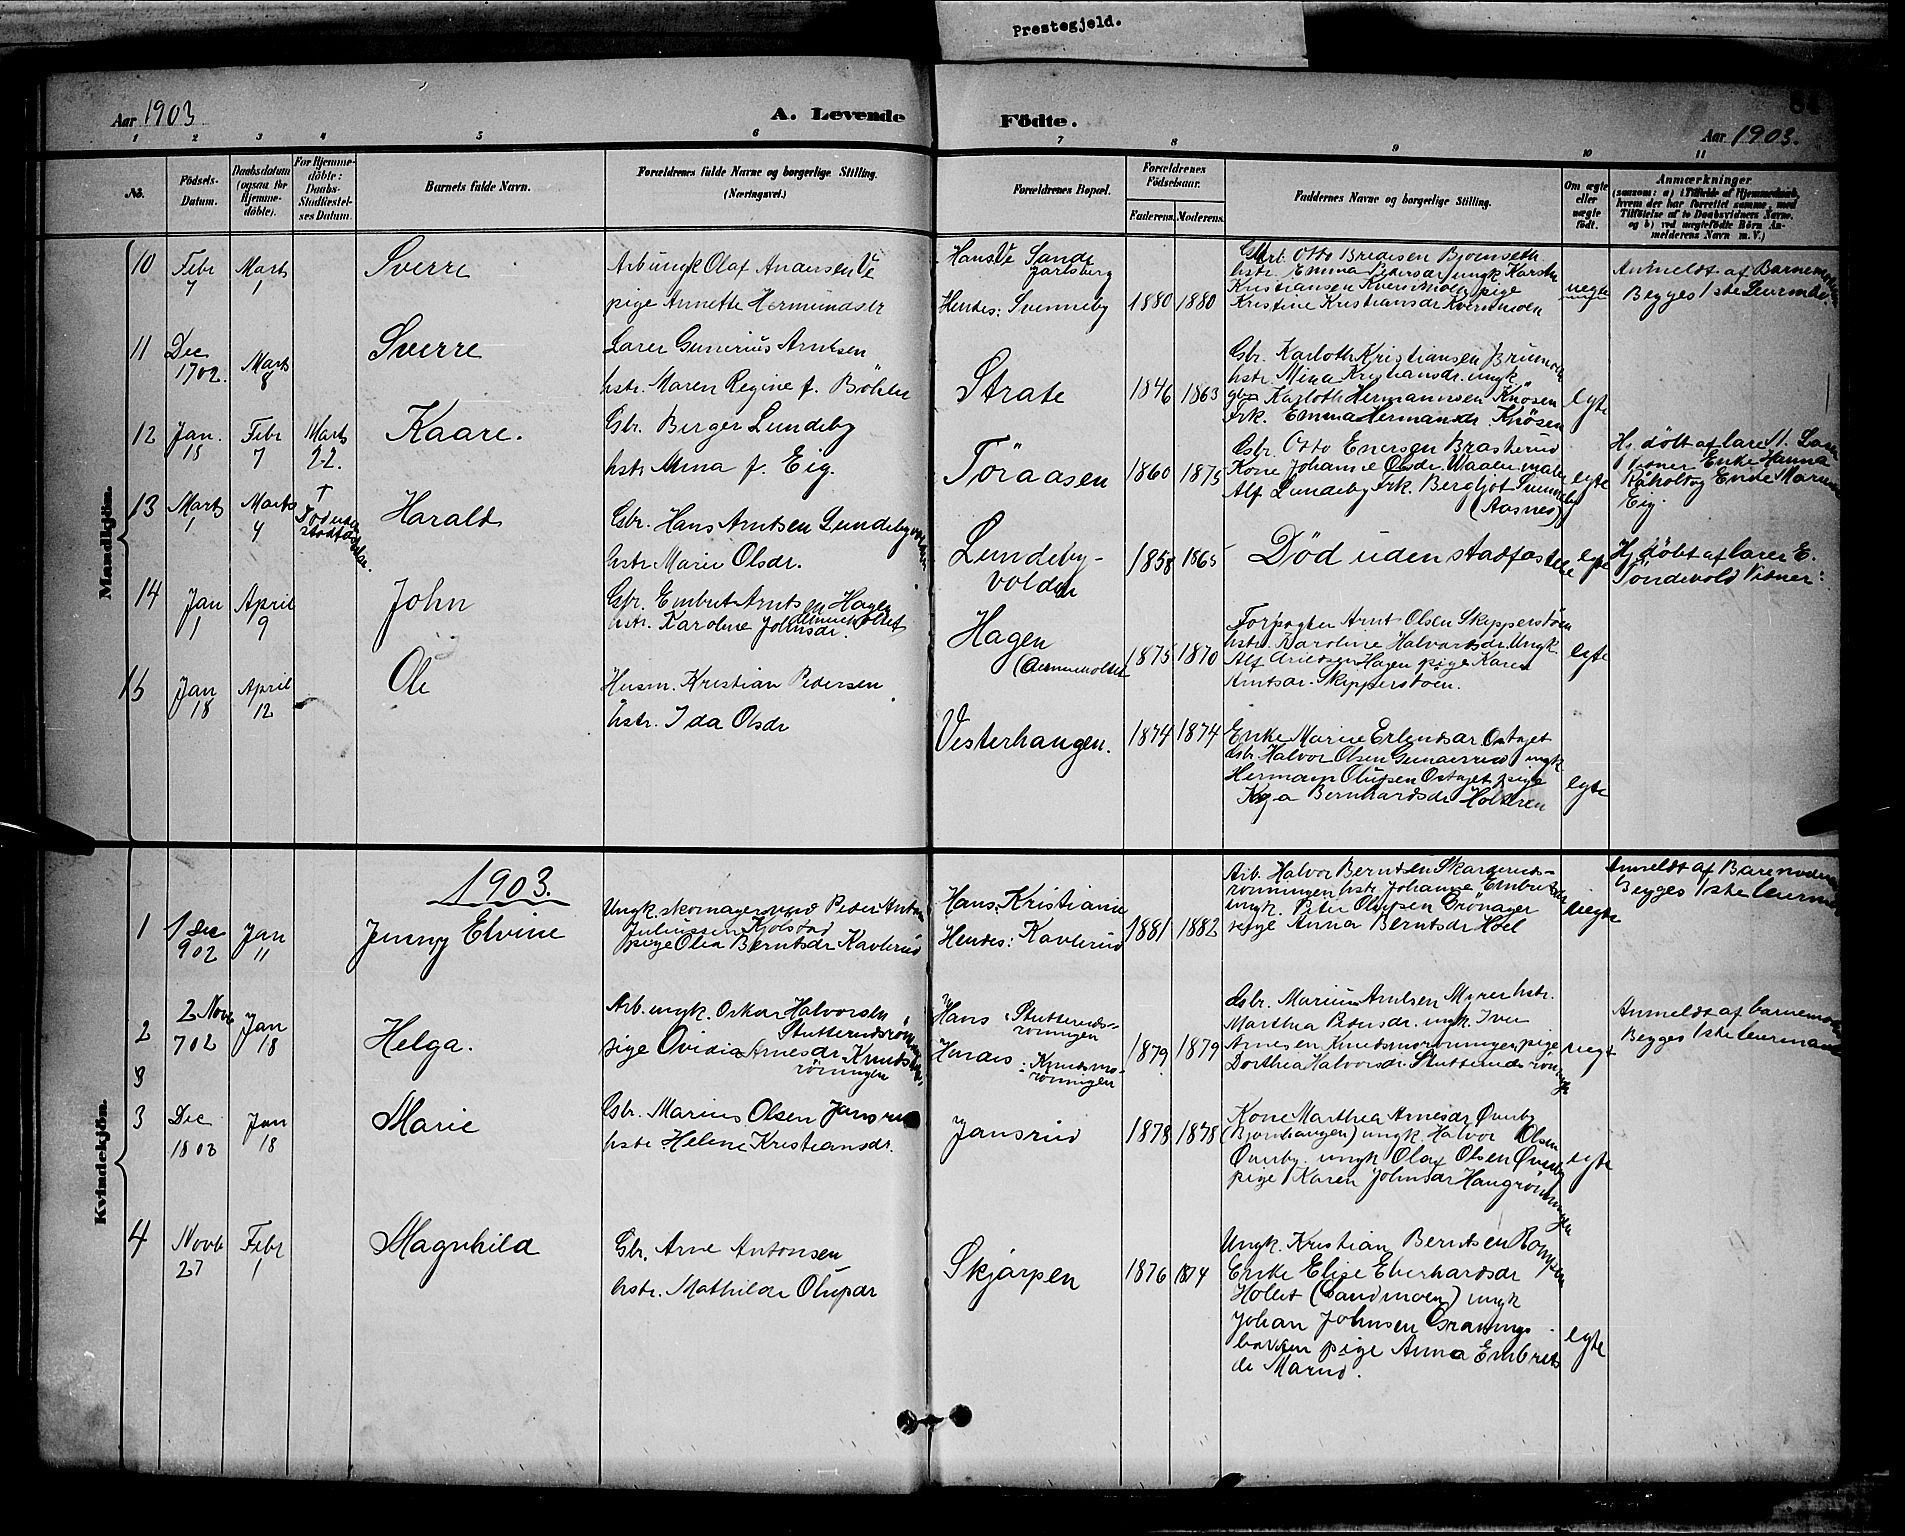 Prestegjeld.
Aar 1903
A. Levende Födte.
81
Aar 1903.
1 2 3 4 5 6 7 8 9 10 11
No.
Födsels-
Datum.
Daabsdatum
(ogsaa for
Hjemme-
döbte).
For Hjemme-
döbte:
Daabs-
Stadfæstel-
ses Datum.
Barnets fulde Navn.
Forældrenes fulde Navne og borgerlige Stilling.
(Næringsvei.)
Forældrenes Bopæl.
Forældrenes
Födselsaar.
Faderens. Moderens.
Faddernes Navne og borgerlige Stilling.
Om ægte
eller
uægte
født.
Anmærkninger
(saasom: a) i Tilfælde af Hjemmedaab,
hvem der har forrettet samme, med
Tilföielse af to Daabsvidners Navne.
og b) ved uægtefödte Börn An-
melderens Navn m. V.)
Mandkjön.
10 Febr 7 Marts 1 Sverre
Arb ungk Olaf Andersen Ve
pige Annette Hermundsdr
Hans Ve Sande
Jarlsberg
Hendes: Svenneby
1880 1880
Gbr. Otto Bredesen Bjornseth
hstr. Emma Pedersdr ungk Karsten
Kristiansen Kvernmoen pige
Kristine Kristiansdr Kvernmoen
uegte
Anmeldt af Barnemoderen
Begges 1ste Leiermaal
11 Dec 1702. Marts 8 Sverre
Lærer Gunerius Arntsen
hstr. Maren Regine f. Böhler
Strate
1846 1863
Gbr. Karloth Kristiansen Brumoen
hstr. Mina Kristiansdr. ungk
Karloth Hermannsen Knösen
Frk. Emma Hermansdr Knösen
egte
12 Jan. 15 Febr 7 Marts 22. Kaare.
Gbr. Berger Lundeby
hstr Mina f. Eig.
Töraasen
1860 1875
Gbr. Otto Enersen Brasterud
Kone Johanne Olsdr. Waaler
Alf Lundeby Frk. Bergljot Svenneby
(Aasnes)
egte
Hj. döbt af lærer
Vidner Enke Hanna
Raholt og Enke Maren
Eig.
13 Marts 1 Marts 4
†
Död uden
stadfæstelse.
Harald
Gbr. Hans Arntsen Lundebyvolden
hstr Marie Olsdr.
Lundeby-
volden
1858 1865
Död uden stadfæstelse
egte
Hj döbt af lærer E.
Töndevold Vidner:
14 Jan 1 April 9 John
Gbr. Embret Arntsen Hagen
hstr. Karoline Johnsdr.
Hagen
1875 1870
Forpagter Arnt Olsen Skipperstøen
hstr. Karoline Halvorsdr. Ungk
Alf Arntsen Hagen pige Karen
Arntsdr. Skipperstoen.
egte
15 Jan 18 April 12 Ole
Husm. Kristian Pedersen
hstr. Ida Olsdr
Vesterhaugen.
1874 1874
Enke Marie Erlandsdr. Ostaget
Gbr. Halvor Olsen Gunnerud ungk
Hermann Olufsen Ostaget pige
Kaja Bernhardsdr Holtren
egte
Kvindekjön.
1903.
1 1 Dec 902 Jan 11 Jenny Elvine
Ungk. skomagersvend Peder Anton
Juliussen Kjolstad
pige Olea Berntsdr Kavlerud
Hans: Kristiania
Hendes: Kavlerud
1881 1882
Arb. Halvor Berntsen Skarderuds-
rönningen hstr. Johanne Embretsdr
ungk. Peter Olufsen Grönager
pige Anna Berntsdr Hoel
uegte
Anmeldt af Barnemoderen
Begges 1ste leiermaal
2 2 Novb 702 Jan 18 Helga.
Arb. ungk. Oskar Halvorsen
Stutterudsrönningen
pige Ovidia Arnesdr. Knudsmo-
rönningen
Hans: Stutteruds-
rönningen
Hendes: Knudsmo-
rönningen
1879 1879
Gbr. Marius Arntsen Myrer hstr.
Marthea Pedersdr. ungk. Iver
Arnesen Knudsmorönningen pige
Dorthea Halvorsdr. Stutterudsrönningen
uegt
Anmeldt af barnemoderen
Begges 1ste leiermaal
3
3 Dec 1803 Jan 18 Marie
Gbr. Marius Olsen Jansrud
hstr Helene Kristiansdr.
Jansrud
1878 1878
Kone Marthea Arnesdr Överby
(Bjornhaugen) ungk. Halvor Olsen
Överby ungk Olaf Olsen Överby
pige Karen Johnsdr Haugrönningen
egte
4 Novb 27 Febr 1 Magnhild
Gbr. Arne Antonsen
hstr. Mathilde Olufsdr
Skjærpen
1876 1874
Ungk. Kristian Berntsen
Enke Elise Eberhardsdr
Holtet (Sandmoen) ungk
Johan Johnsen Grannings-
bakken pige Anna Embrets
dr Marud.
egte